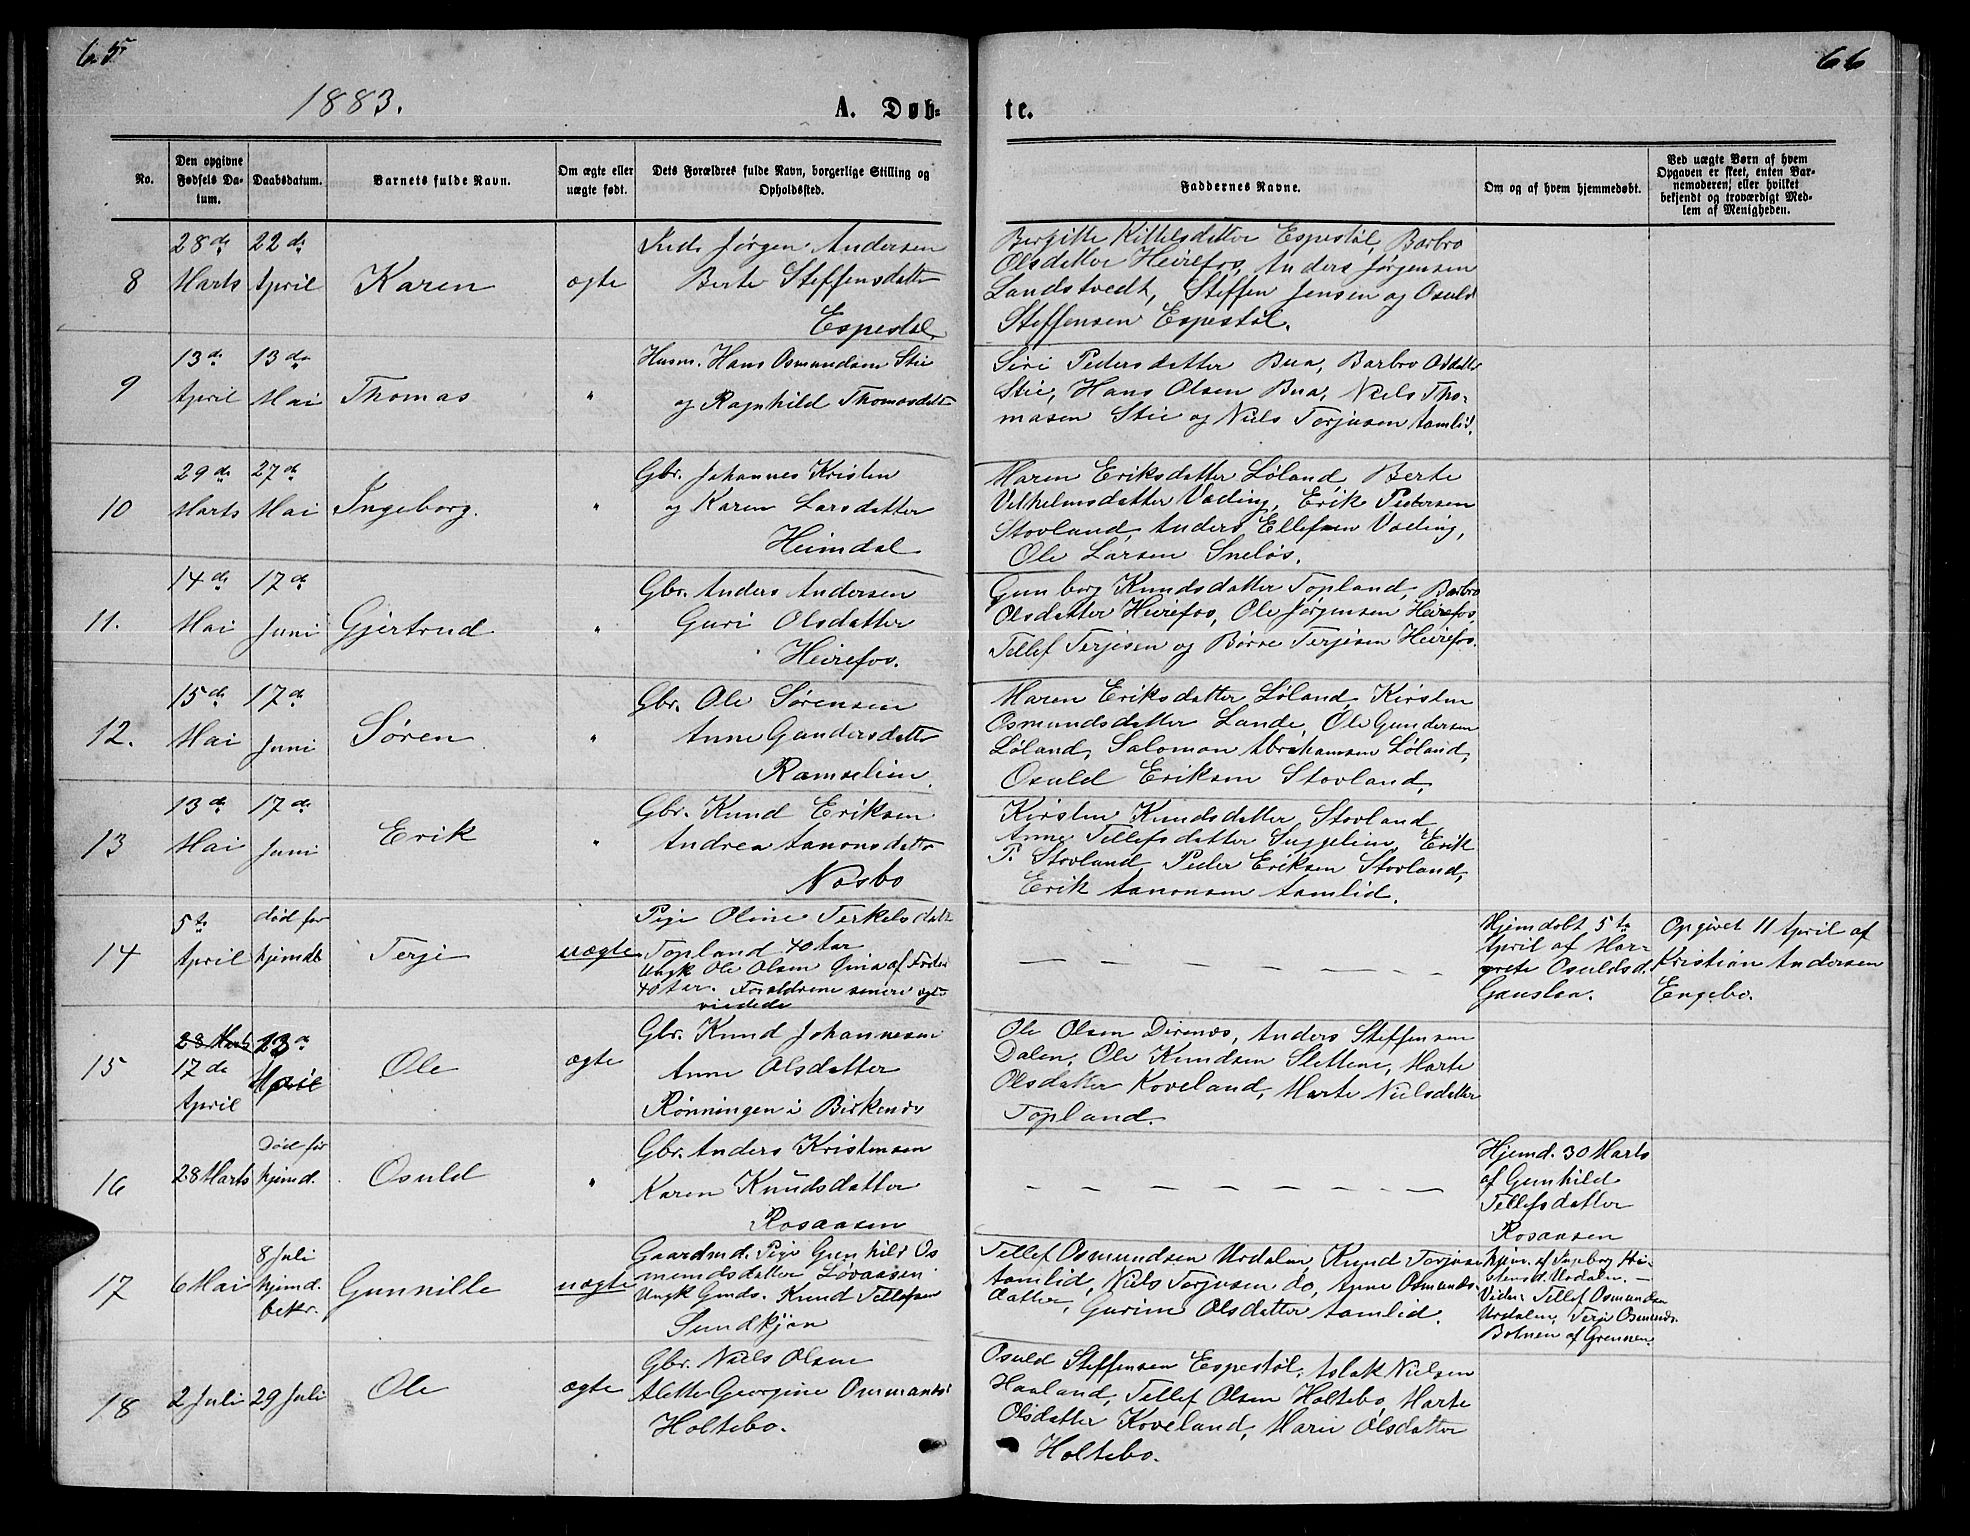 65
66
1883.
A. Døb-
te.
No.
Den opgivne
Fødsels Da-
tum.
Daabsdatum.
Barnets fulde Navn.
Om ægte eller
uægte født.
Dets Forældres fulde Navn, borgerlige Stilling og
Opholdssted.
Faddernes Navne.
Om og af hvem hjemmedøbt.
Ved uægte Børn af hvem
Opgaven er skeet, enten Bar-
nemoderen, eller hvilket
bekjendt og troværdigt Med-
lem af Menigheden.
8
28de
Marts
22de
April
Karen
ægte
Jørgen Andersen
Berte Steffensdatter
Espestøl
Birgitte Kittelsdatter Espestøl, Barbro
Olsdatter Heirefos, Anders Jørgensen
Landstvedt, Steffen Jensen og Osuld
Steffensen Espestøl.
9
13de
April
13de
Mai
Thomas
"
Husm. Hans Osmundsen Stie
og Ragnhild Thomasdatt
Siri Pedersdatter Bua, Barbro Osdatter
Stie, Hans Olsen Bua, Niels Tho-
masen Stie og Niels Torjusen Aamlid.
10
29de
Marts
27de
Mai
Ingeborg.
"
Gbr. Johannes Kristen
og Karen Larsdatter
Heimdal
Maren Eriksdatter Løland, Berte
Vilhelmsdatter Væding, Erik Pedersen
Stovland, Anders Ellefsen Væding,
Ole Larsen Sneløs.
11.
14de
Mai
17de
Juni
Gjertrud
"
Gbr. Anders Andersen
Guri Olsdatter
Heirefos.
Gunborg Knudsdatter Topland, Barbro
Olsdatter Heirefos, Ole Jørgensen Heirefos,
Tellef Terjesen og Børre Terjesen Heirefos.
12.
15de
Mai
17de
Juni
Søren
"
Gbr. Ole Sørensen
Anne Gundersdatter
Ramselien
Maren Eriksdatter Løland, Kirsten
Osmundsdatter Lande, Ole Gundersen
Løland, Salomon Abrahamsen Løland,
Osuld Eriksen Stovland,
13
13de
Mai
17de
Juni
Erik
"
Gbr. Knud Eriksen
Andrea Aanonsdatter
Næsbo
Kirsten Knudsdatter Stovland
Anne Tellefsdatter Suggelien, Erik
P. Stovland, Peder Eriksen Stovland,
Erik Aanonsen Aamlid.
14
5te
April
død før
hjemdb
Terje
uægte
Pige Oline Terkelsdatt
Topland 40 Aar
Ungk Ole Olsen
40 Aar. Forældrene senere ægte
viedede
Hjemdøbt 5te
April af Mar-
grete Osuldsd.
Gauslaa.
Opgivet 11 April af
Kristian Andersen
Engebo.
15
28 Marts
17de
April
13de
Mai
Ole
ægte
Gbr. Knud Johannesen
Anne Olsdatter
Rønningen i Birkenæs
Ole Olsen Direnæs, Anders Steffensen
Dalen, Ole Knudsen Slettene, Marte
Olsdatter Koveland, Marte Nielsdatter
Topland.
16
28 Marts
Død før
hjemd.
Osuld
"
Gbr. Anders Kristensen
Karen Knudsdatter
Rosaasen
Hjemd. 30 Marts
af Gunhild
Tellefsdatter
Rosaasen
17
6 Mai
8 Juli
hjemd.
bekr.
Gunnille
uægte
Gaardmd. Pige Gunhild Os
mundsdatter Løvaasen
Ungk Gmds. Knud Tellefsen
Sundkjøn
Tellef Osmundsen Urdalen, Knud Torjusen
Aamlid, Niels Torjusen do, Anne Osmunds-
datter, Gurine Olsdatter Aamlid.
hjem. af Ingeborg Kri-
stensd. Urdalen. —
Vidn: Tellef Osmundsen
Urdalen, Terje Osmunds.
Botnen af Grennen.
18
2 Juli
29 Juli
Ole
ægte
Gbr. Niels Olsen
Alette Georgine Osmundsd
Holtebo.
Osuld Steffensen Espestøl, Aslak Nielsen
Haaland, Tellef Olsen Holtebo, Marte
Olsdatter Koveland, Marie Olsdatter
Holtebo.